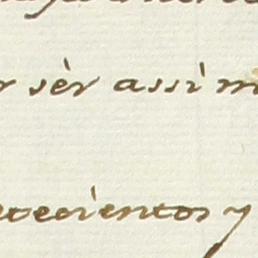 r sèr assi m
etecientos y